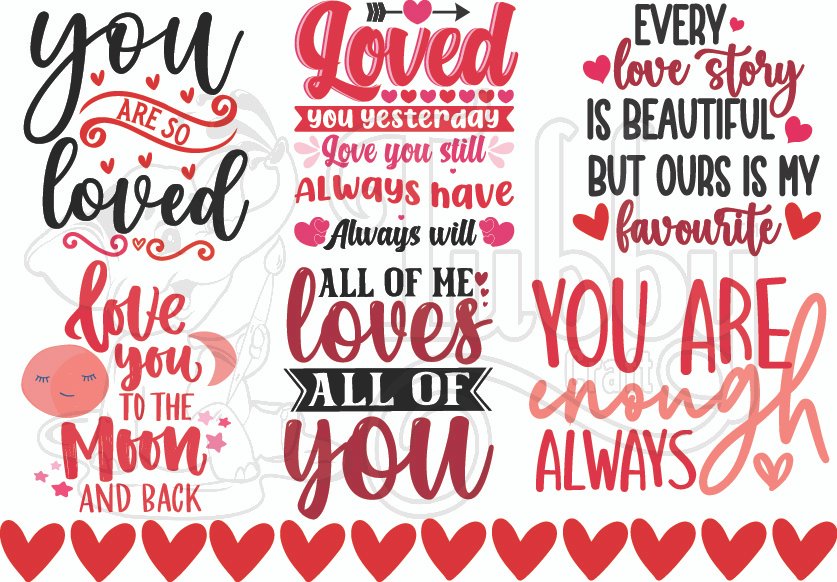 you
ARE SO
loved
Loved
you yesterday
Love you still
Always have
Always will
EVERY
love story
IS BEAUTIFUL
BUT OURS IS MY
favourite
love
you
TO THE
Moon
AND BACK
ALL OF ME
loves
ALL OF
you
YOU ARE
enough
ALWAYS
Tubby
Craft